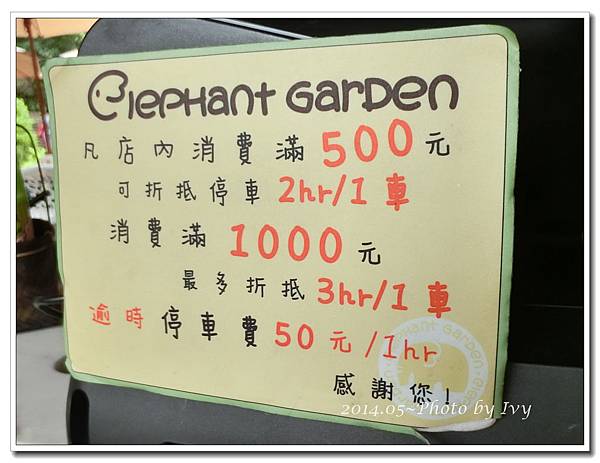 elephant Garden
凡店內消費滿500元
可折抵停車2hr/1車
消費滿1000元
最多折抵3hr/1車
逾時停車費50元/1hr
感謝您!
ELEPHANT GARDEN
2014.05~Photo by Ivy